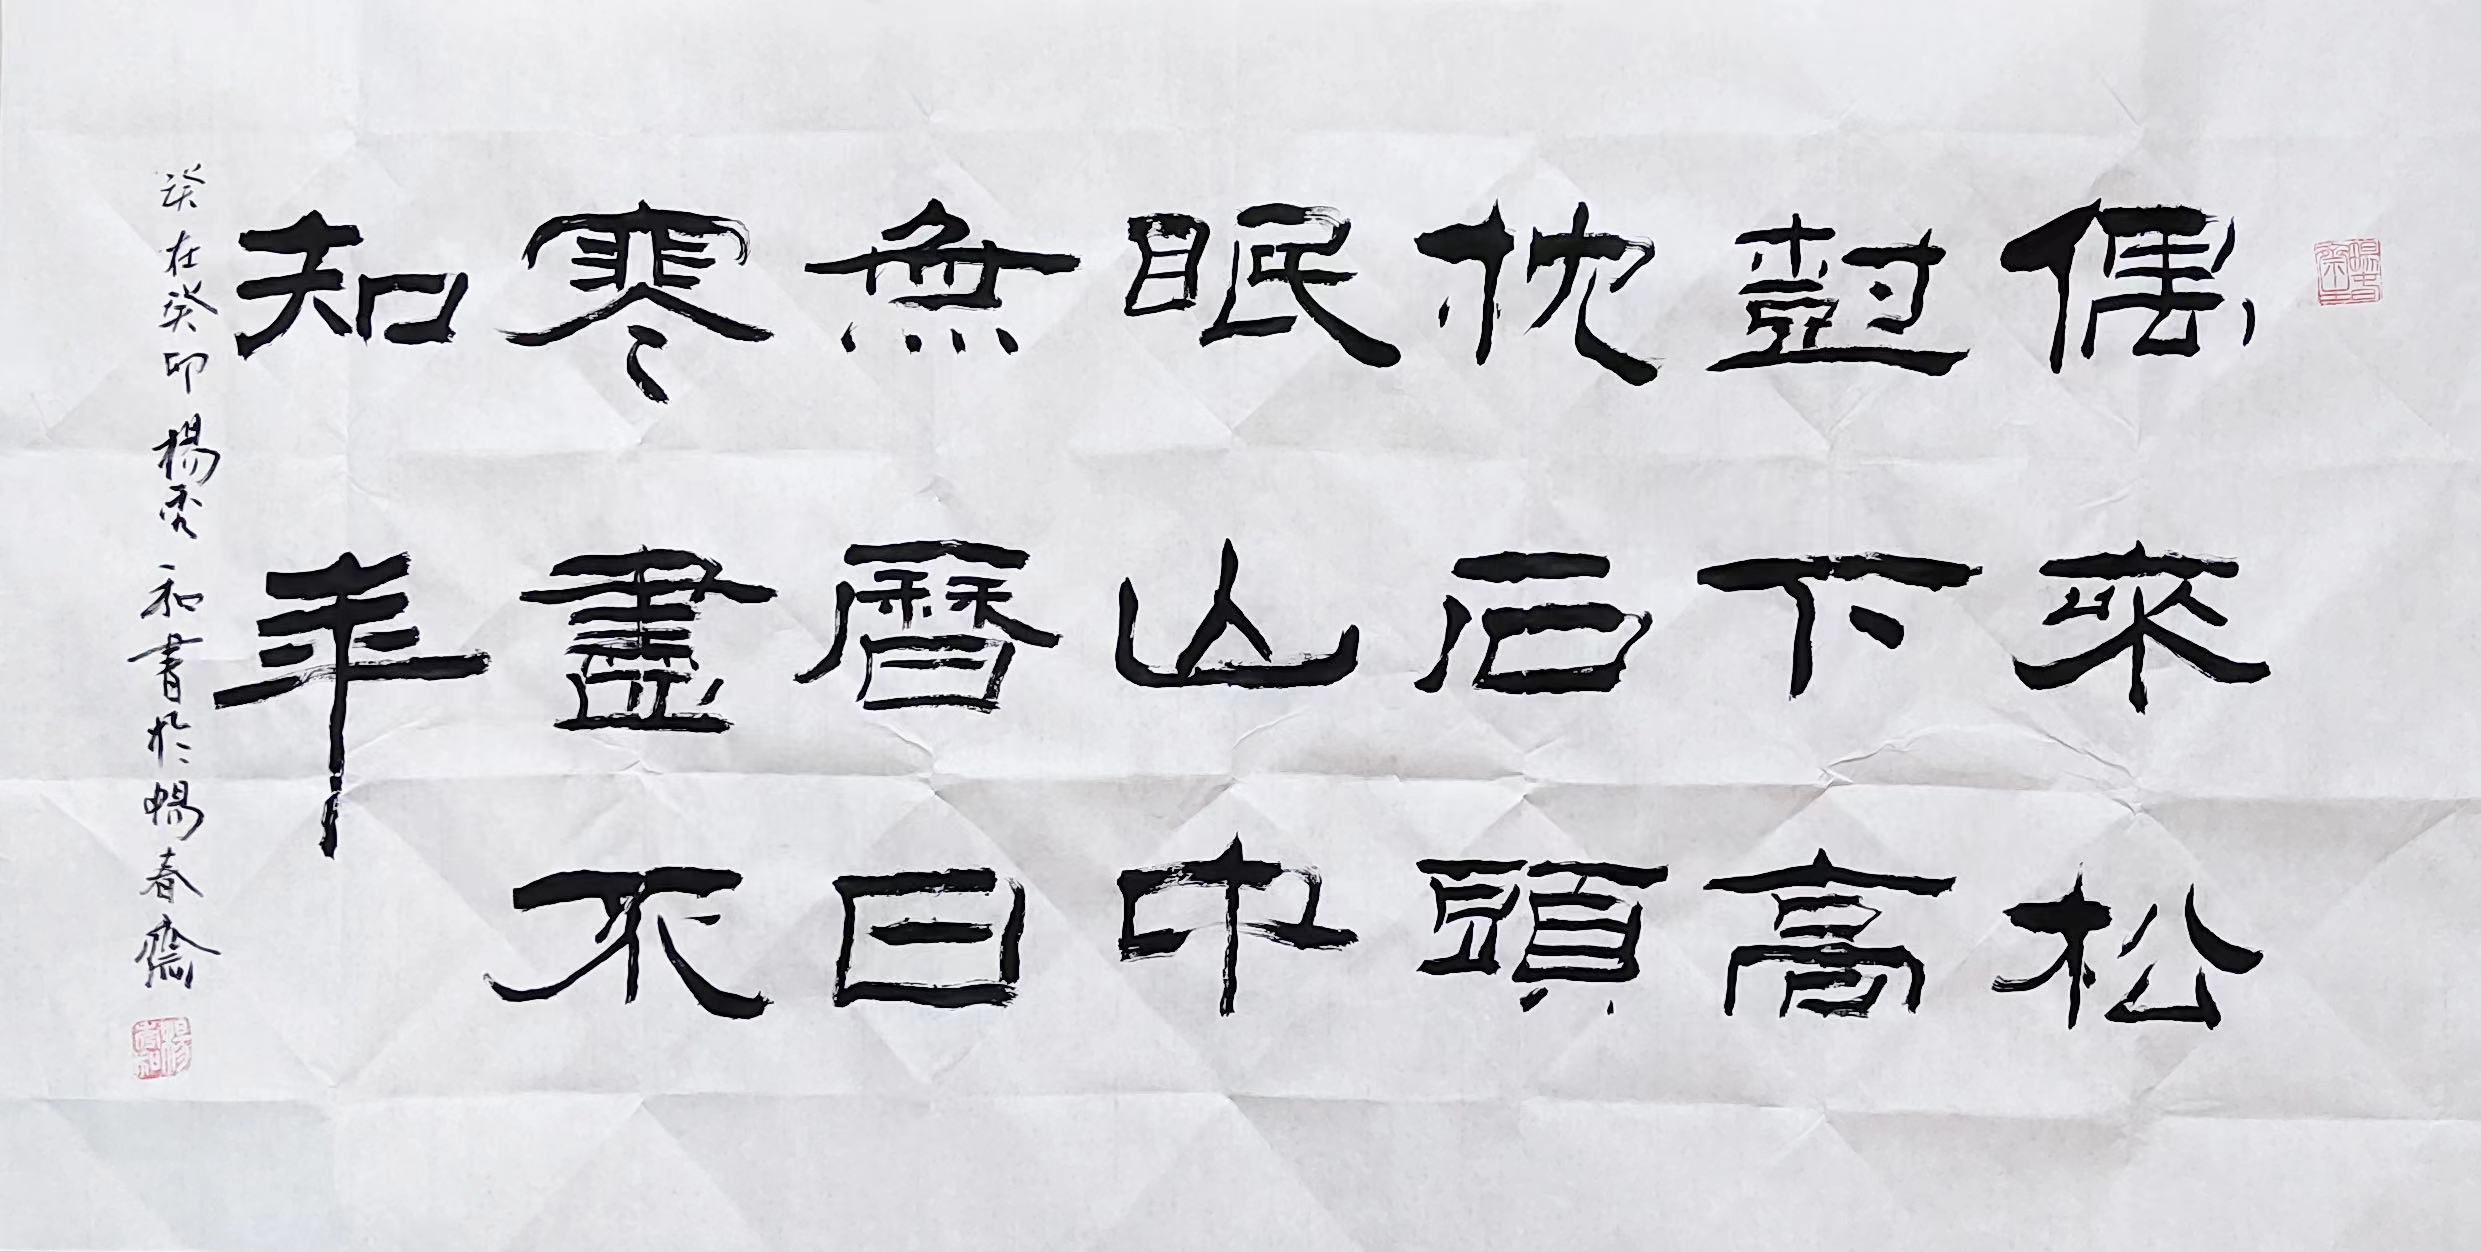 偶來松
樹下高
枕石頭
眠山中
無曆日
寒盡不
知年
歲在癸卯楊秀和書於暢春齋